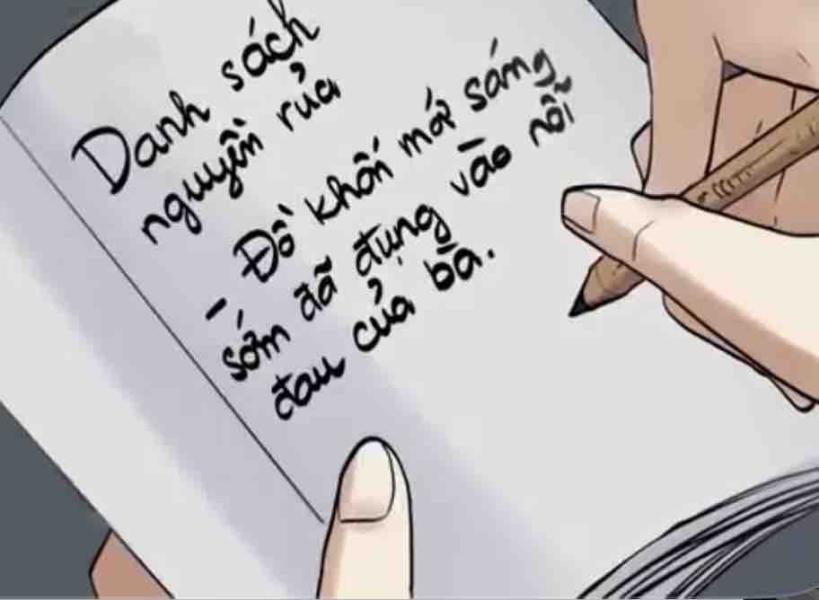 Danh sách
nguyền rủa
- Đồ khốn mới sáng
sớm đã đụng vào nỗi
đau của bà.